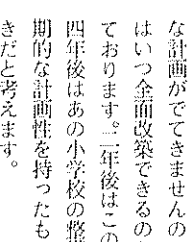 な計画がでてきませんの
はいつ全面改築できるの
ております。二年後はこの
四年後はあの小学校の整
期的な計画性を持ったも
きだと考えます。